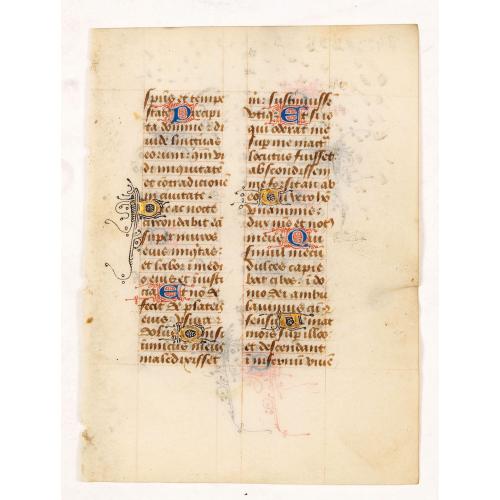 spūs et tempe
state Precipi
ta domine : di
uide linguas
eorum : qm̄ vi
di iniquitatē
et cōtradictionē
in ciuitate
Die ac nocte
circūdabit eā
super muros
eius iniquitas :
et labor ī medi
o eius et iniusti
cia Et nō de
fecit de plateis
eius vsura et
dolus Qm̄ si
inimicus meus
maledixisset
m̄ : sustinuissē
vtiq Et si is
qui oderat me
sup me mag
locutus fuisset
abscondissem
me forsitan ab
eo Tu vero ho
vnanimis :
dux m̄s et not
meus Qui
simul mecū
dulces capie
bas cibos : ī do
mo dei ambu
lauimus cū cō
sensu Veniat
mors sup illos
et descendant
ī infernū viuē